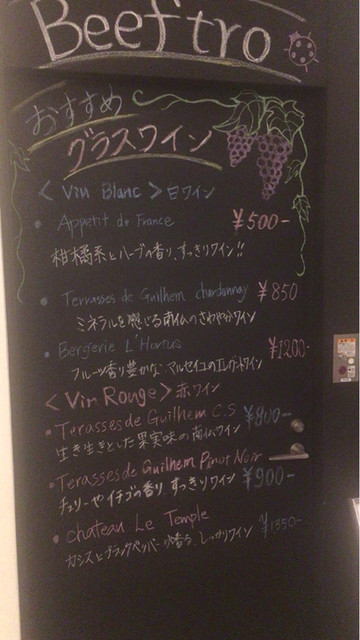 Beef'tro
おすすめ
グラスワイン
< Vin Blanc > 白ワイン
• Appetit de France ¥500-
柑橘系とハーブの香り、すっきりワイン!!
• Terrasses de Guilhem chardonnay ¥850
ミネラルを感じる南仏のさわやかワイン
• Bergerie L'Hortus ¥1200-
フルーツ香り豊かな マルセイユのエレガントワイン
< Vin Rouge > 赤ワイン
• Terasses de Guilhem C.S ¥800-
生き生きとした果実味の南仏ワイン
• Terasses de Guilhem Pinot Noir ¥900-
チェリーやイチゴの香り、すっきりワイン
• chateau Le Temple ¥1350-
カシスとブラックペッパーが香る、しっかりワイン